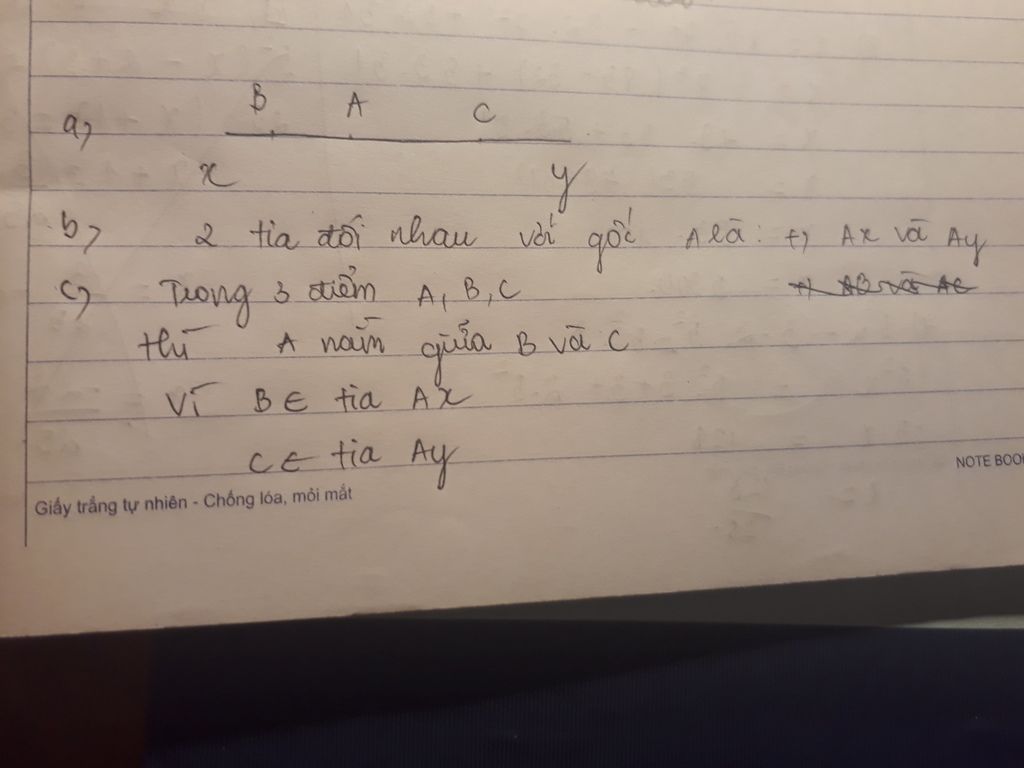 B A C
a,
x y
b, 2 tia đối nhau với gốc A là: +, Ax và Ay
c, Trong 3 điểm A, B, C +, AB và AC
thì A nằm giữa B và C
Vì B ∈ tia Ax
C ∈ tia Ay
NOTE BOOK
Giấy trắng tự nhiên - Chống lóa, mỏi mắt